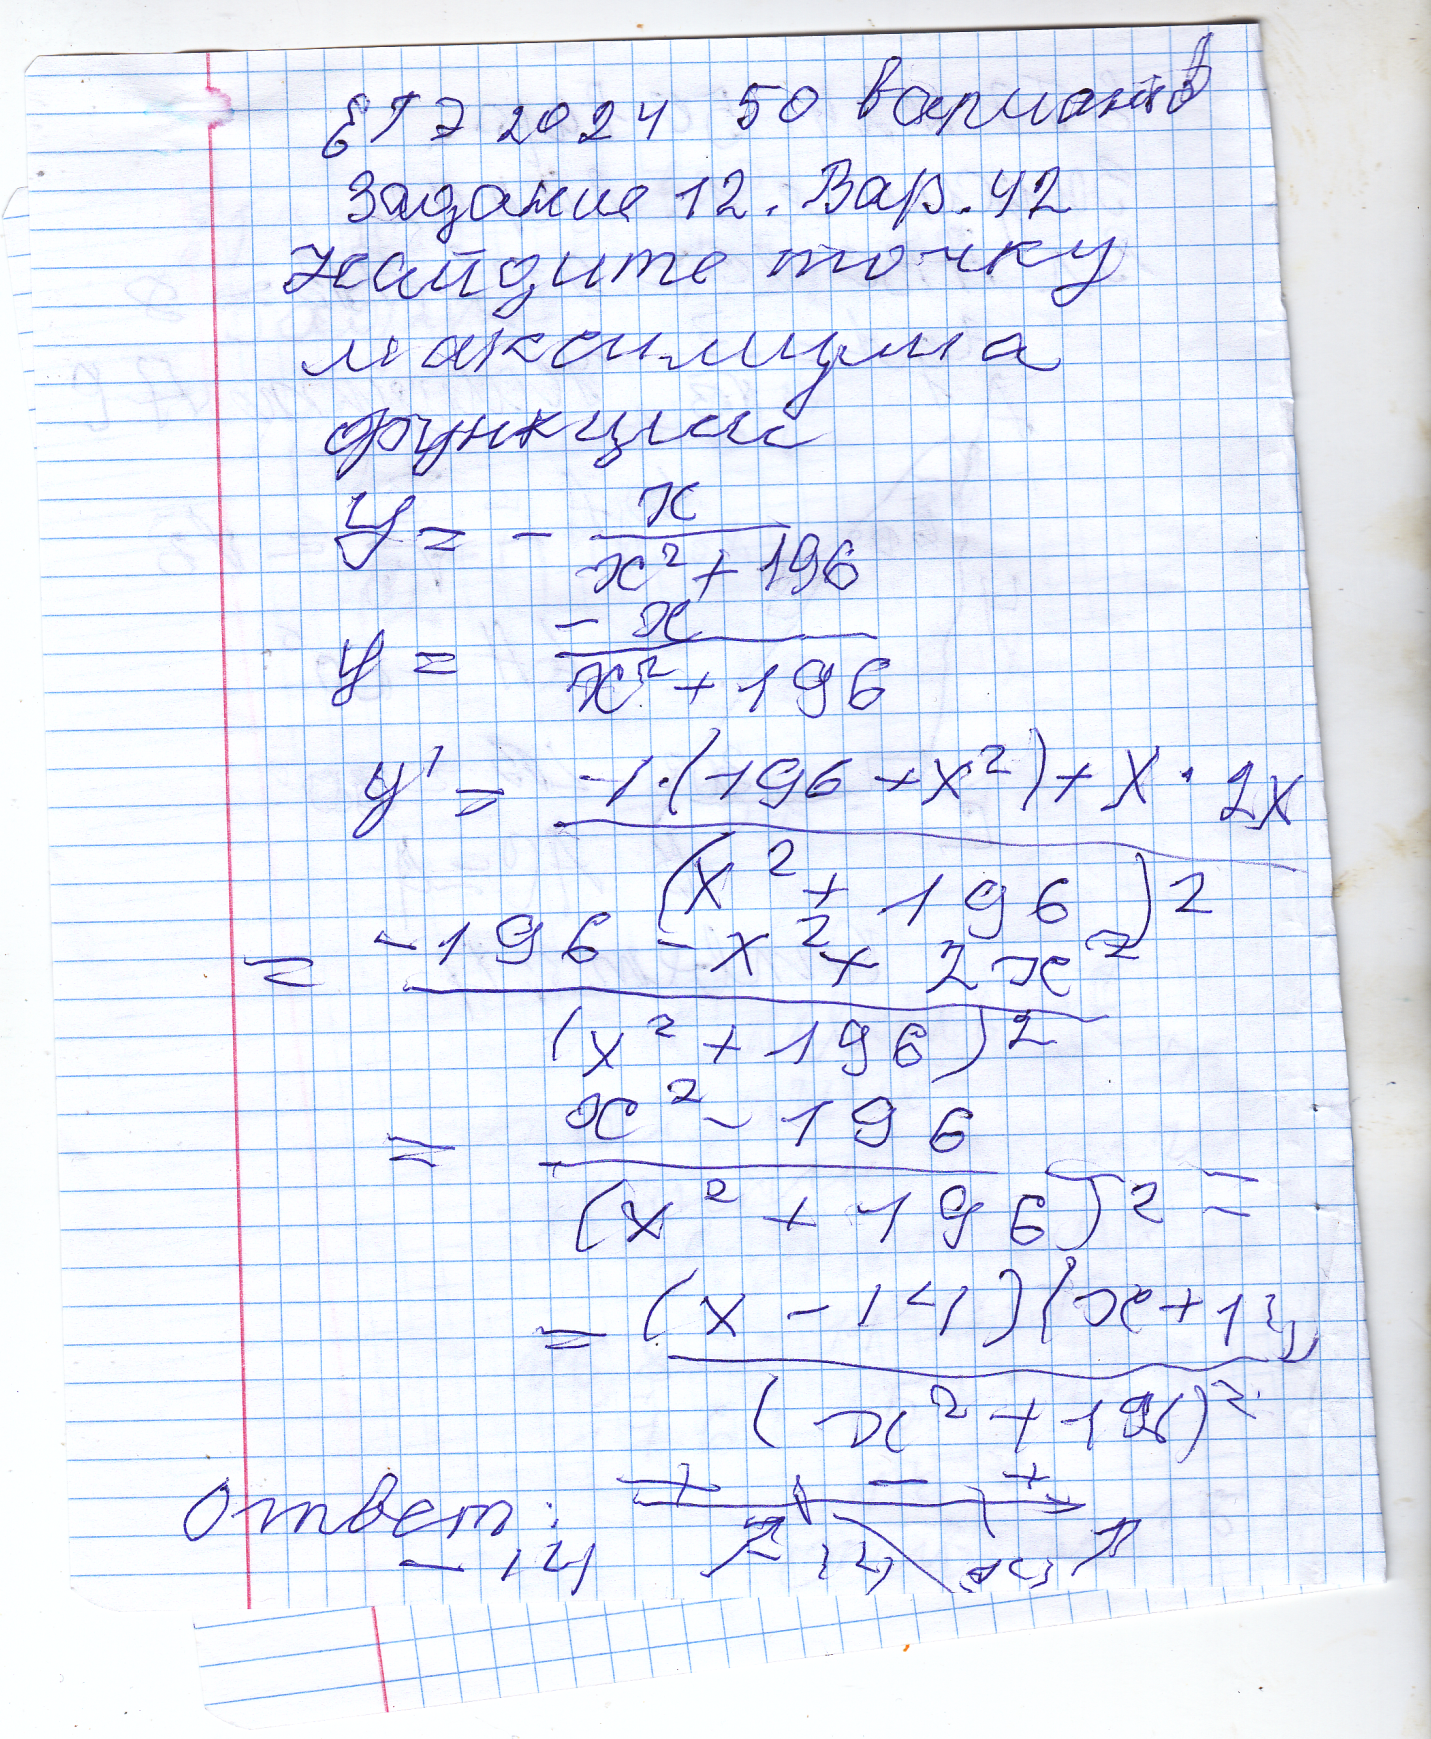 ЕГЭ 2024 50 вариантов
Задание 12. Вар. 42
Найдите точку
максимума
функции
y = - x / (x² + 196)
y = -x / (x² + 196)
y' = (-1·(196 + x²) + x · 2x) / (x² + 196)²
= (-196 - x² + 2x²) / (x² + 196)²
= (x² - 196) / (x² + 196)² =
= (x - 14)(x + 14) / (x² + 196)²
+ - +
Ответ:
-14